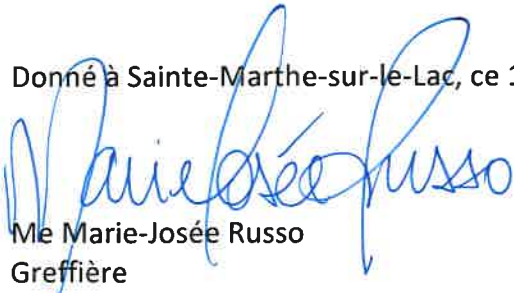 Donné à Sainte-Marthe-sur-le-Lac, ce 1
Marie Josée Russo
Me Marie-Josée Russo
Greffière